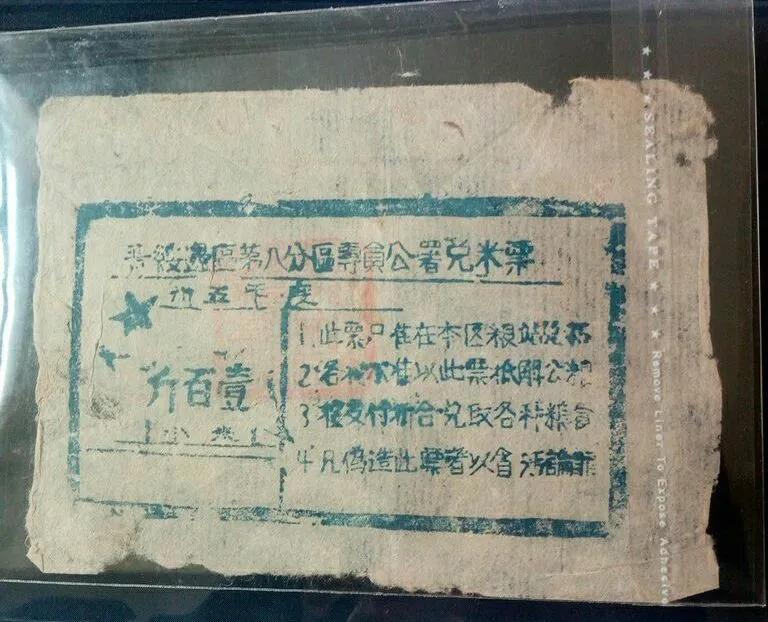 晋綏邊區第八分區專員公署兌米票
卅五年度
壹百斤
小米
1.此票只准在本区粮站
2.各 不准以此票抵解公粮
3.按支付 合兌取各种粮食
4.凡偽造此票者以 論罪
★ ★ ★ SEALING TAPE ★ ★ ★ Remove Liner To Expose Adhesive